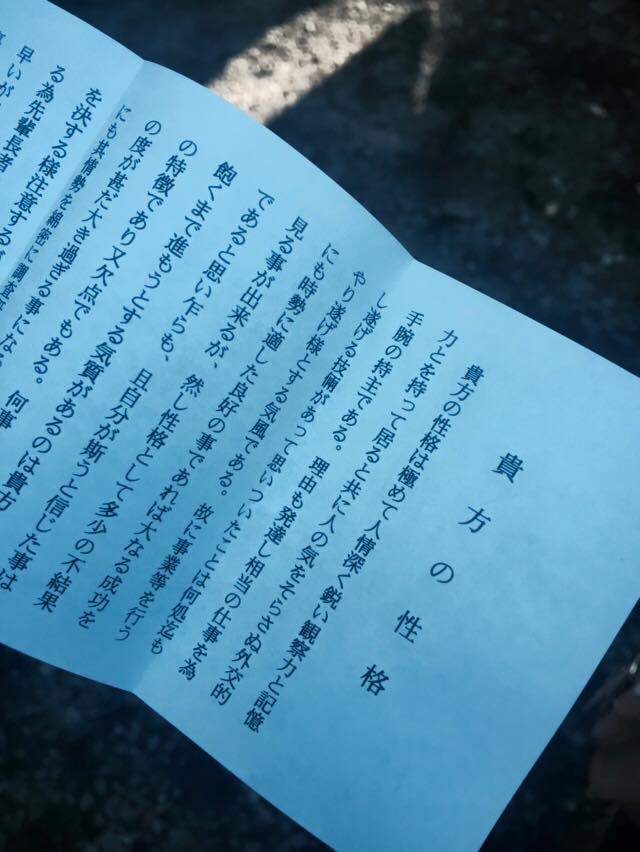 貴方の性格
貴方の性格は極めて人情深く鋭い観察力と記憶
力とを持って居ると共に人の気をそらさぬ外交的
手腕の持主である。理由も発達し相当の仕事を為
し遂げる技倆があって思いついたことは何処迄も
やり遂げ様とする気風である。故に事業等を行う
にも時勢に適した良好の事であれば大なる成功を
見る事が出来るが、然し性格として多少の不結果
であると思い乍らも、且自分が斯うと信じた事は
飽くまで進もうとする気質があるのは貴方
の特徴であり又欠点でもある。何事
の度が甚だ大き過ぎる事になる
にも其情勢を綿密に調査
を決する様注意するが
る為先輩長者
早いが